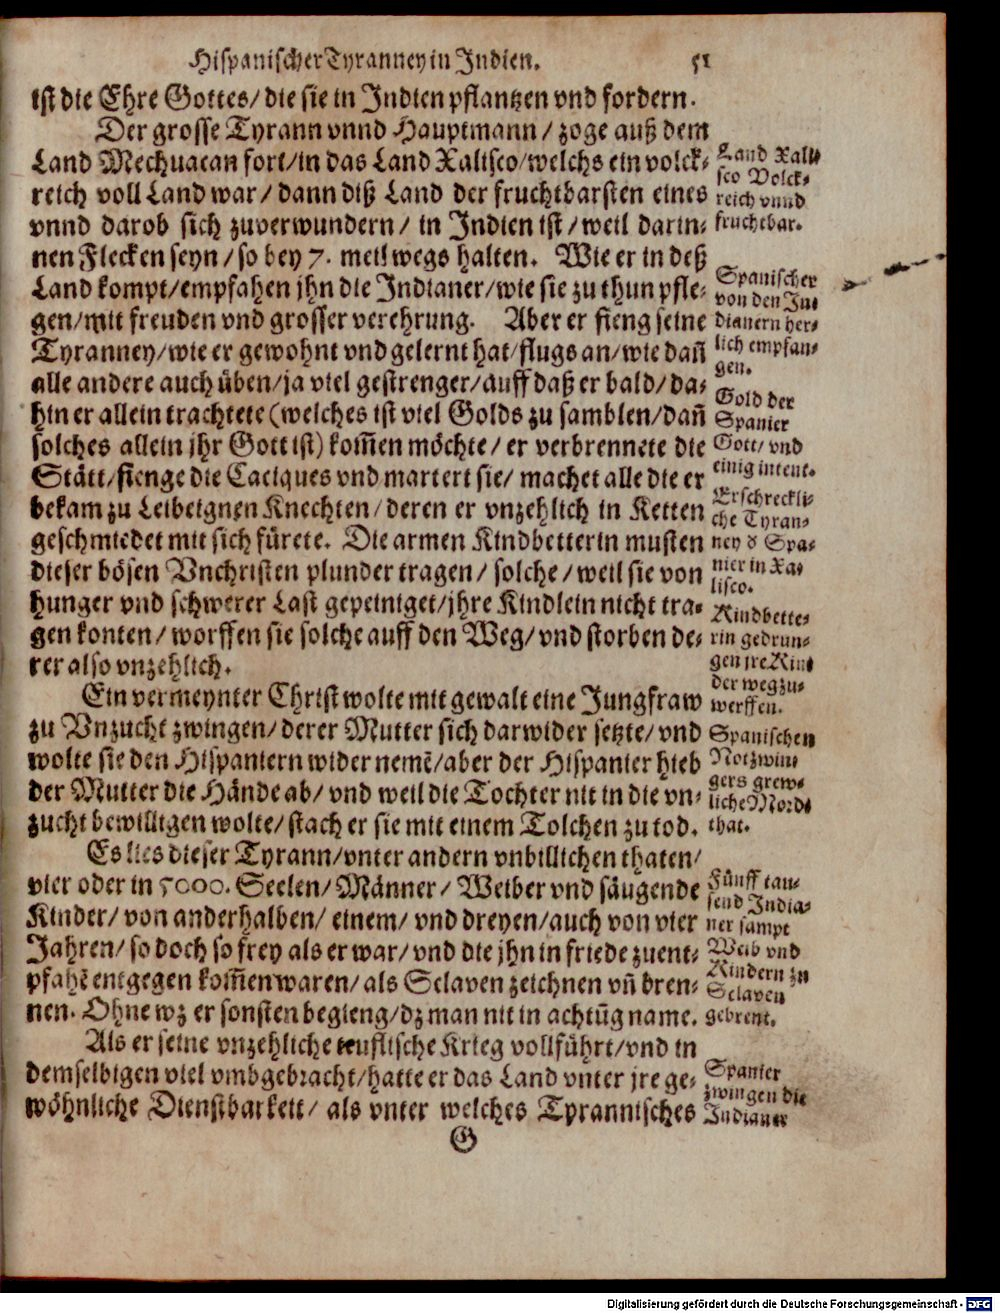 Hispanischer Tyranney in Indien. 51
ist die Ehre Gottes/ die sie in Indien pflantzen vnd fordern.
Der grosse Tyrann vnnd Hauptmann/ zoge auß dem
Land Mechuacan fort/in das Land Xalisco/welchs ein volck⸗
reich voll Land war/ dann diß Land der fruchtbarsten eines
vnnd darob sich zuverwundern/ in Indien ist/ weil darin⸗
nen Flecken seyn/ so bey 7. meil wegs halten. Wie er in deß
Land kompt/empfahen jhn die Indianer/wie sie zu thun pfle⸗
gen/mit freuden vnd grosser verehrung. Aber er fieng seine
Tyranney/wie er gewohnt vnd gelernt hat/flugs an/wie dañ
alle andere auch üben/ja viel gestrenger/auff daß er bald/da⸗
hin er allein trachtete (welches ist viel Golds zu samblen/dañ
solches allein jhr Gott ist) kom̃en möchte/ er verbrennete die
Stätt/fienge die Caciques vnd martert sie/ machet alle die er
bekam zu Leibeignen Knechten/ deren er vnzehlich in Ketten
geschmiedet mit sich fürete. Die armen Kindbetterin musten
dieser bösen Vnchristen plunder tragen/ solche/ weil sie von
hunger vnd schwerer Last gepeiniget/jhre Kindlein nicht tra⸗
gen konten/ worffen sie solche auff den Weg/ vnd storben de⸗
rer also vnzehlich.
Ein vermeynter Christ wolte mit gewalt eine Jungfraw
zu Vnzucht zwingen/ derer Mutter sich darwider setzte/ vnd
wolte sie den Hispaniern wider nemẽ/aber der Hispanier hieb
der Mutter die Hände ab/ vnd weil die Tochter nit in die vn⸗
zucht bewilligen wolte/ stach er sie mit einem Tolchen zu tod.
Es lies dieser Tyrann/vnter andern vnbillichen thaten/
vier oder in 5000. Seelen/ Männer/ Weiber vnd säugende
Kinder/ von anderhalben/ einem/ vnd dreyen/auch von vier
Jahren/ so doch so frey als er war/ vnd die jhn in friede zuent⸗
pfahẽ entgegen kom̃en waren/ als Sclaven zeichnen vñ bren⸗
nen. Ohne wz er sonsten begieng/dz man nit in achtũg name.
Als er seine vnzehliche teuflische Krieg vollführt/vnd in
demselbigen viel vmbgebracht/hatte er das Land vnter jre ge⸗
wöhnliche Dienstbarkeit/ als vnter welches Tyrannisches
G
Land Xali⸗
sco Volck⸗
reich vnnd
fruchtbar.
Spanischer
von den In⸗
dianern her⸗
lich empfan⸗
gen.
Gold der
Spanier
Gott/ vnd
einig intent.
Erschreckli⸗
che Tyran⸗
ney d Spa⸗
nier in Xa⸗
lisco.
Kindbette⸗
rin gedrun⸗
gen jre Kin⸗
der wegzu⸗
werffen.
Spanischen
Notzwin⸗
gers grew⸗
liche Mord⸗
that.
Fünff tau⸗
send India⸗
ner sampt
Weib vnd
Kindern zu
Sclaven
gebrent.
Spanier
zwingen die
Indianer
Digitalisierung gefördert durch die Deutsche Forschungsgemeinschaft - DFG